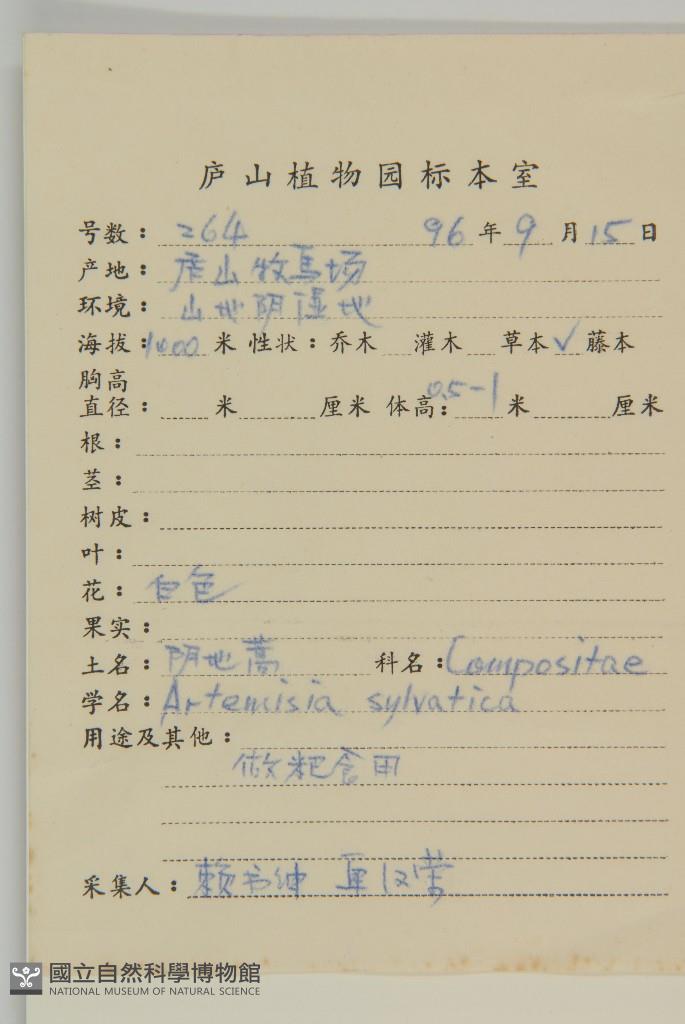 庐山植物园标本室
号数：264 96年9月15日
产地：庐山牧馬场
环境：山地阴湿地
海拔：1000米 性状：乔木 灌木 草本✓ 藤本
胸高
直径： 米 厘米 体高：0.5-1米 厘米
根：
茎：
树皮：
叶：
花：白色
果实：
土名：阴地蒿 科名：Compositae
学名：Artemisia sylvatica
用途及其他：
做粑食用
采集人：赖书绅
國立自然科學博物館
NATIONAL MUSEUM OF NATURAL SCIENCE